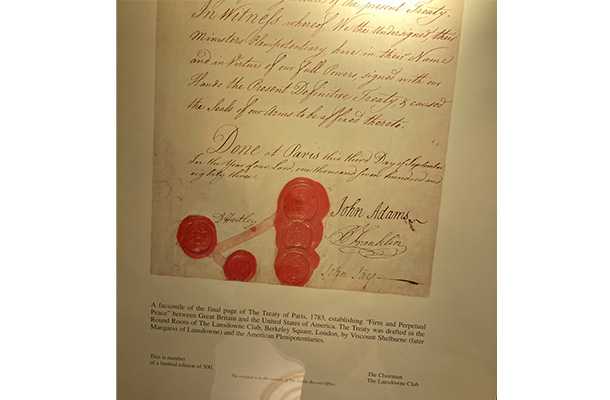 of the present Treaty.
In Witness whereof We the Undersigned their
Ministers Plenipotentiary, have in their Name
and in Virtue of our Full Powers, signed with our
Hands the Present Definitive Treaty, & caused
the Seals of our Arms to be affixed thereto.
Done at Paris this third Day of September
In the Year of our Lord, one thousand seven hundred and
eighty three
D Hartley
John Adams
B Franklin
John Jay
A facsimile of the final page of The Treaty of Paris, 1783, establishing "Firm and Perpetual
Peace" between Great Britain and the United States of America. The Treaty was drafted in the
Round Room of The Lansdowne Club, Berkeley Square, London, by Viscount Shelburne (later
Marquess of Lansdowne) and the American Plenipotentiaries.
This is number
of a limited edition of 500.
The Chairman
The Lansdowne Club